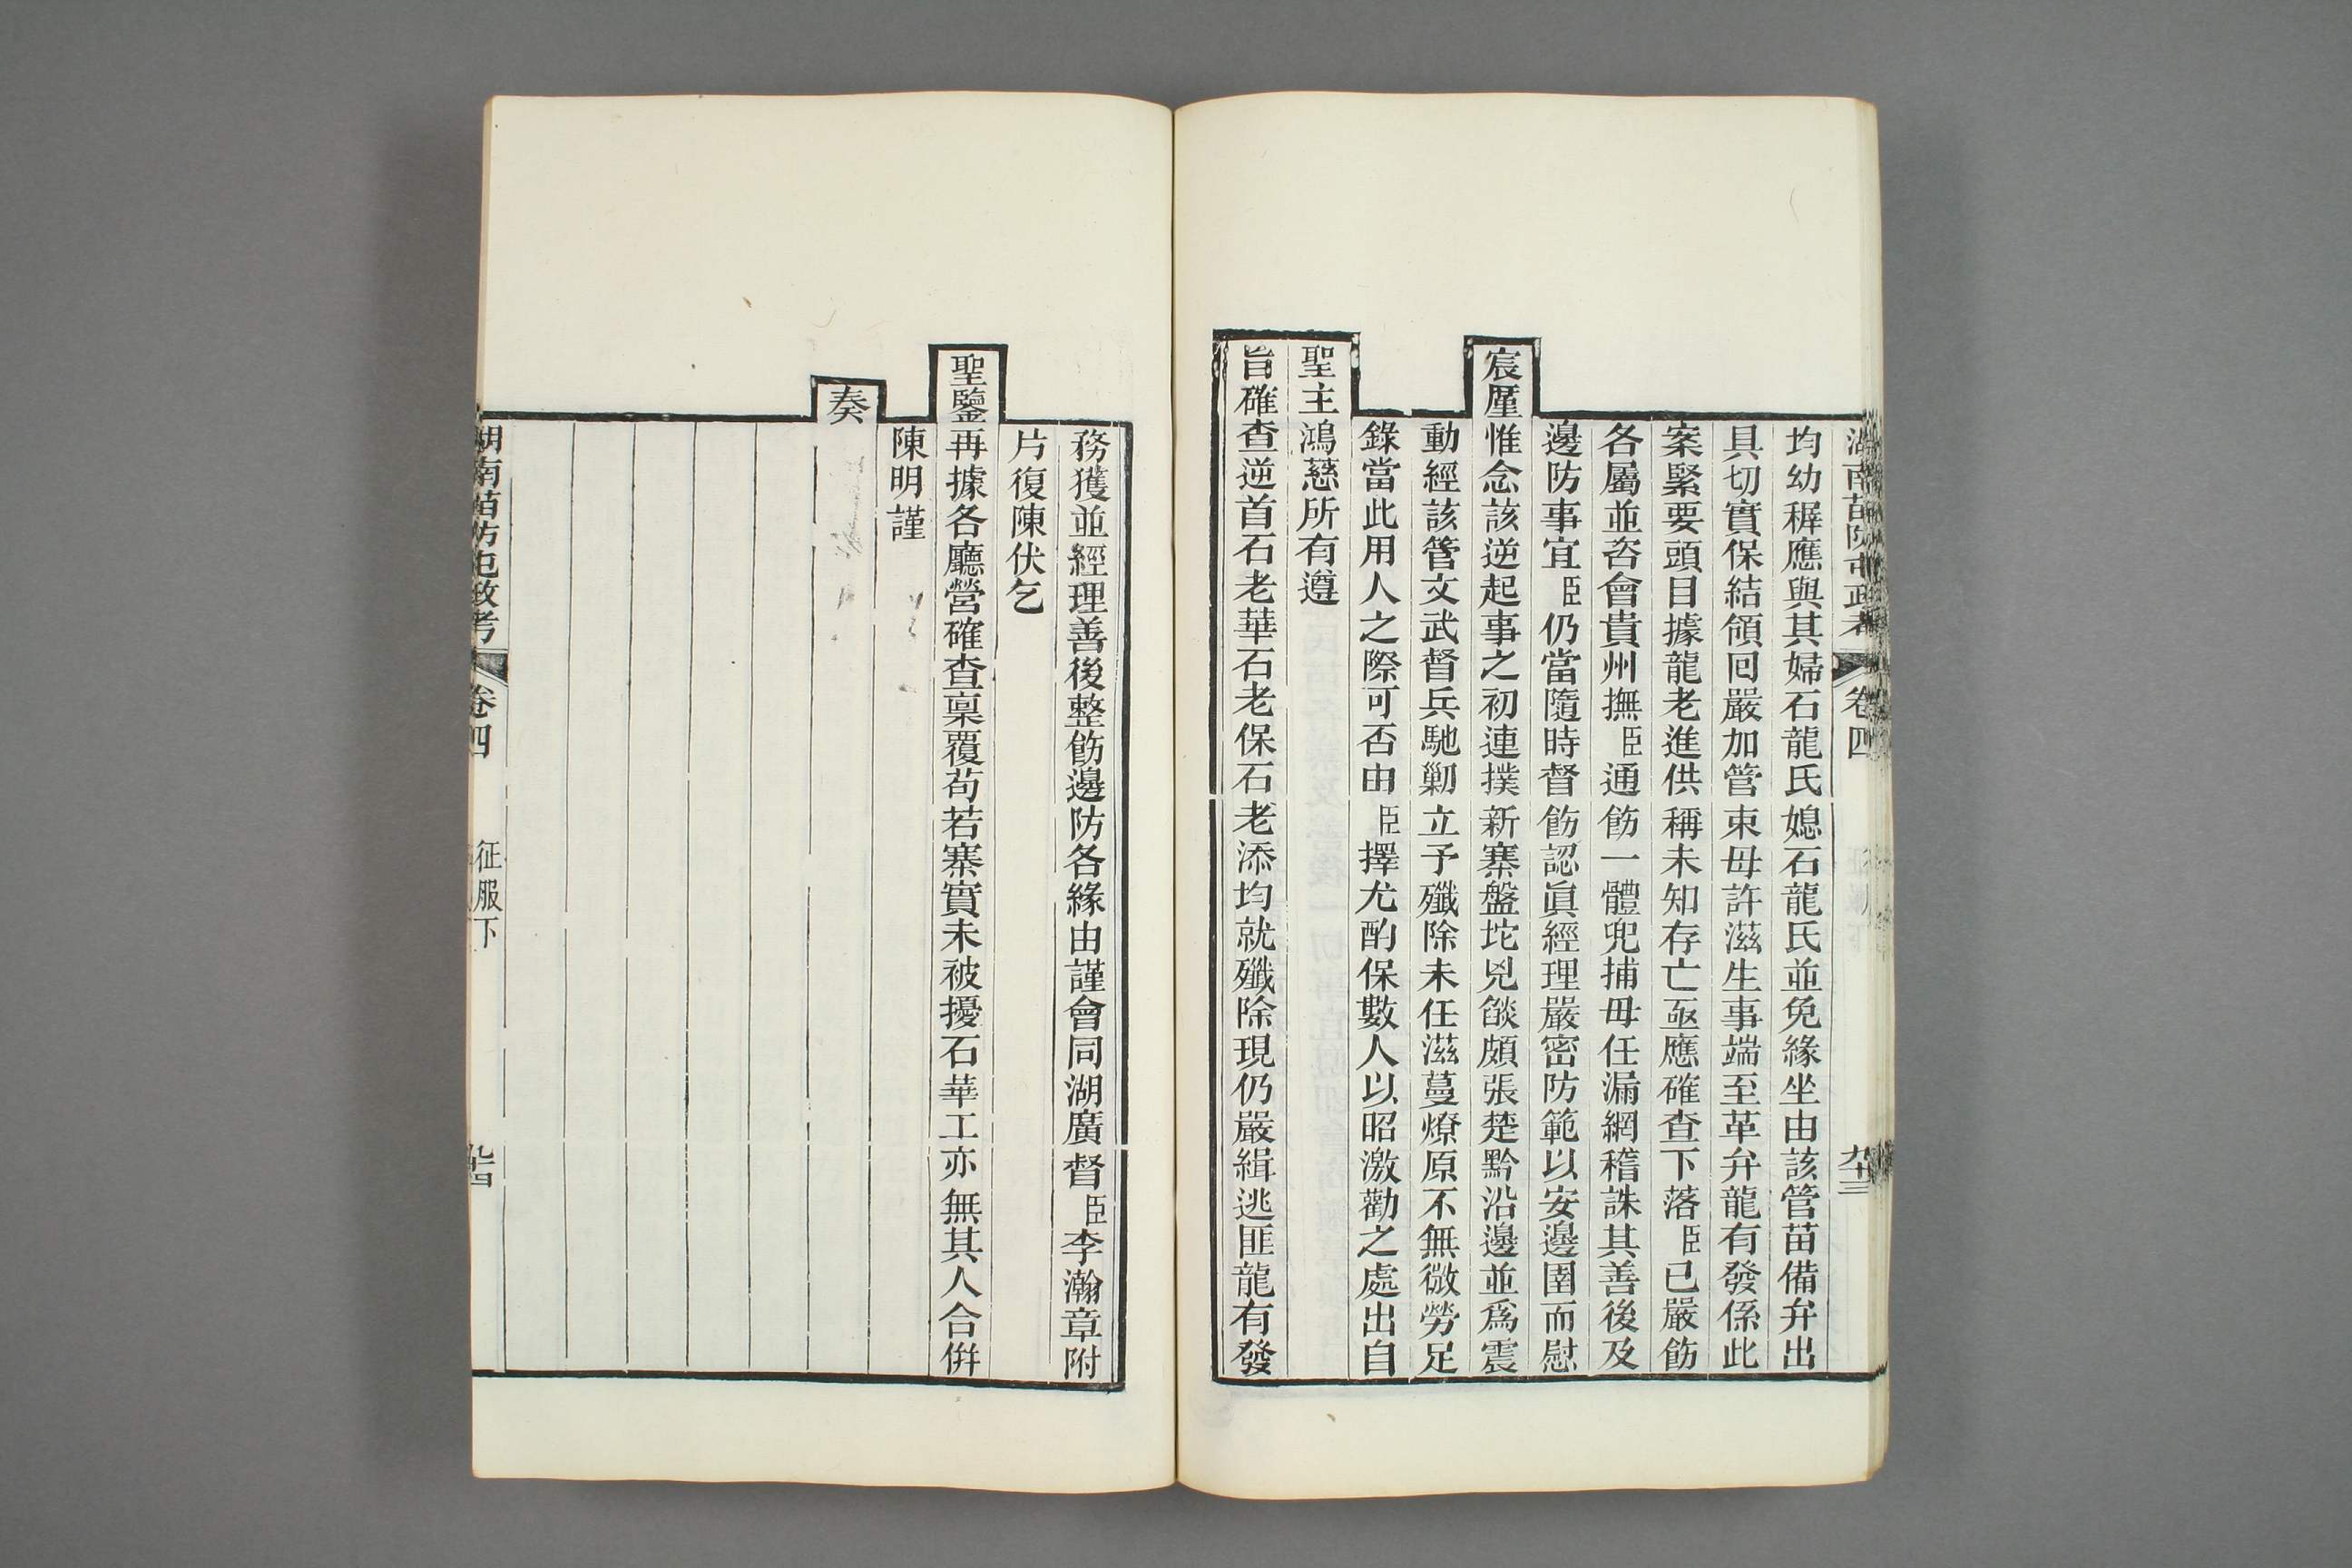 湖南苗防屯政考 卷四 征服下 九十三
均幼穉應與其婦石龍氏媳石龍氏並免緣坐由該管苗備弁出
具切實保結領囘嚴加管束毋許滋生事端至革弁龍有發係此
案緊要頭目據龍老進供稱未知存亡亟應確查下落臣已嚴飭
各屬並咨會貴州撫臣通飭一體兜捕毋任漏網稽誅其善後及
邊防事宜臣仍當隨時督飭認眞經理嚴密防範以安邊圉而慰
宸厪惟念該逆起事之初連撲新寨盤坨兇燄頗張楚黔沿邊並爲震
動經該管文武督兵馳剿立予殲除未任滋蔓燎原不無微勞足
錄當此用人之際可否由臣擇尤酌保數人以昭激勸之處出自
聖主鴻慈所有遵
旨確查逆首石老華石老保石老添均就殲除現仍嚴緝逃匪龍有發
務獲並經理善後整飭邊防各緣由謹會同湖廣督臣李瀚章附
片復陳伏乞
聖鑒再據各廳營確查稟覆苟若寨實未被擾石華工亦無其人合倂
陳明謹
奏
湖南苗防屯政考 卷四 征服下 九十四